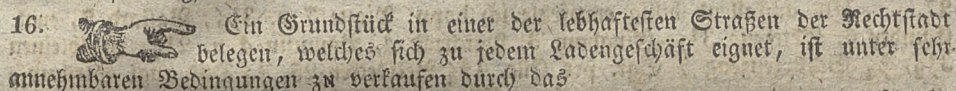 16. Ein Grundstück in einer der lebhaftesten Straßen der Rechtstadt
belegen, welches sich zu jedem Ladengeschäft eignet, ist unter sehr
annehmbaren Bedingungen zu verkaufen durch das